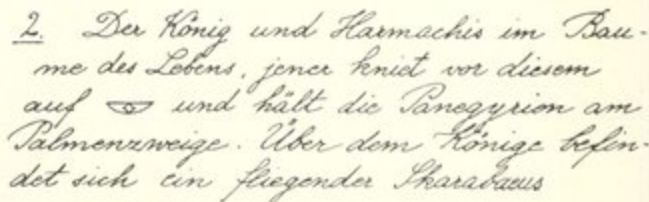 2. Der König und Harmachis im Bau-
me des Lebens, jener kniet vor diesem
auf und hält die Panegyrien am
Palmenzweige. Über dem Könige befin-
det sich ein fliegender Skarabaeus